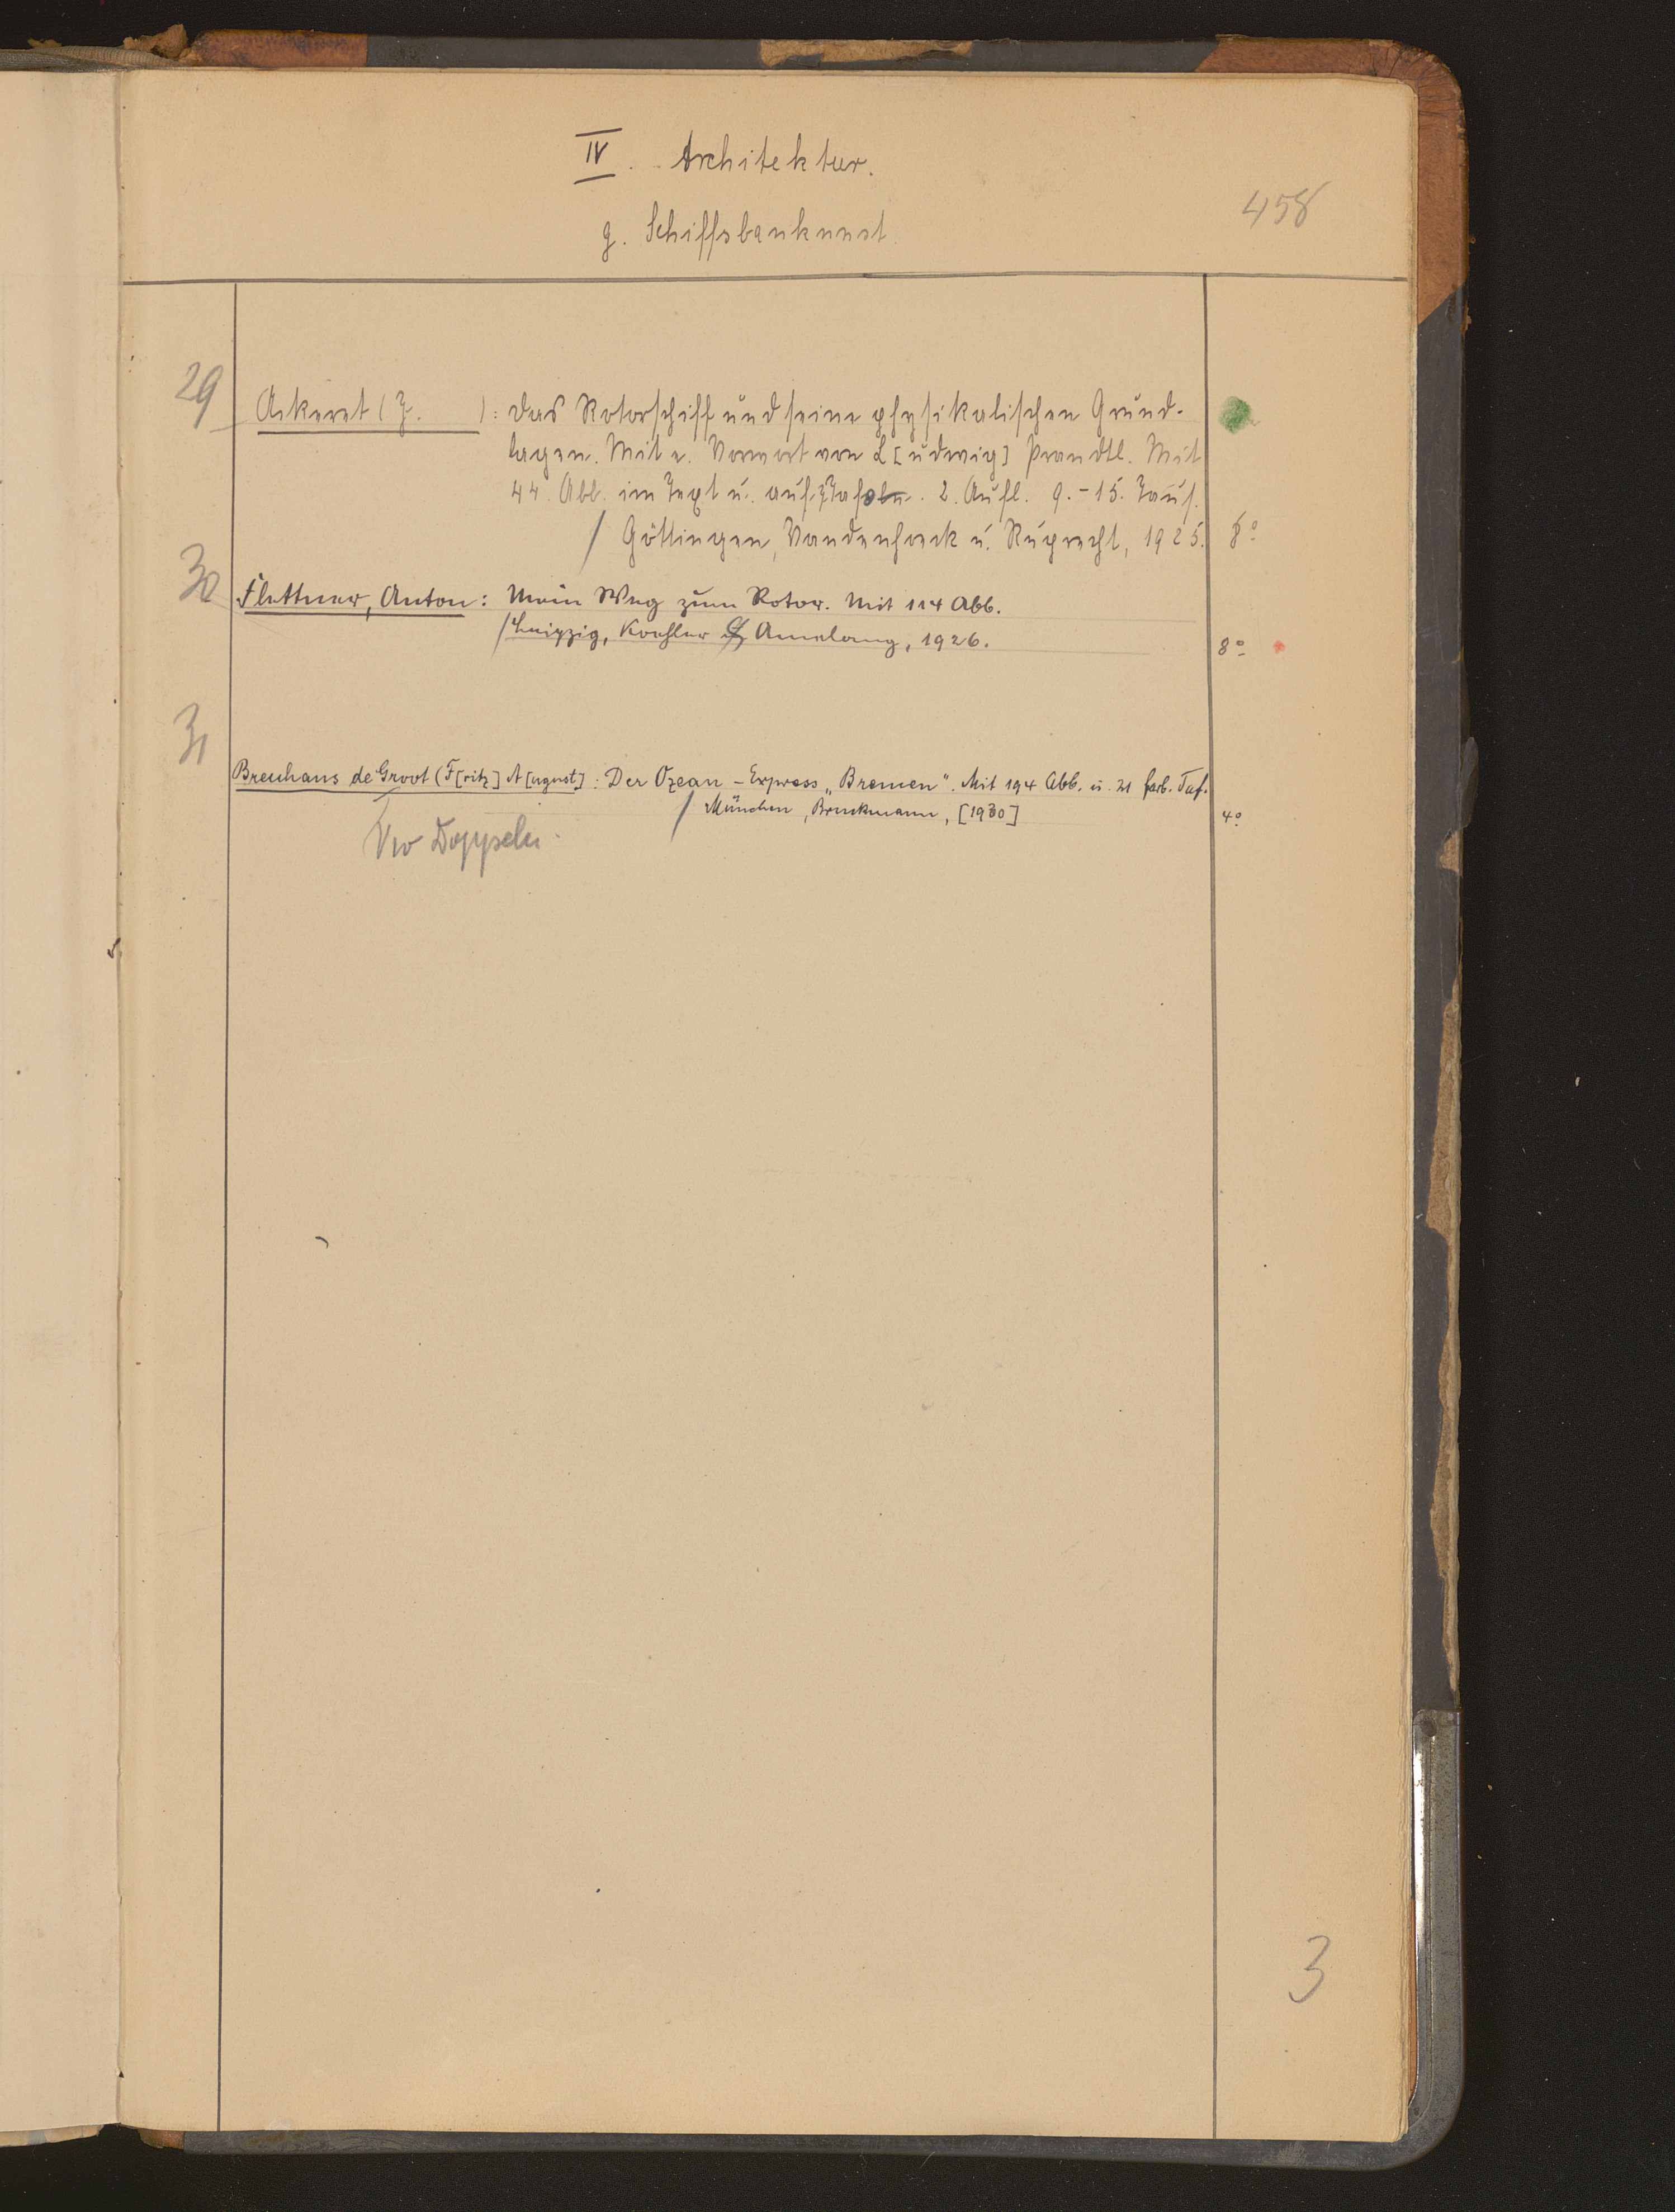 IV. Architektur.
458
g. Schiffsbaukunst
29
Ackeret (J. ): Das Rotorschiff und seine physikalischen Grund-
lagen. Mit e. Vorwort von L[udwig] Prandtl. Mit
44. Abb. im Text u. auf Tafeln. 2. Aufl. 9.-15. Taus.
/ Göttingen, Vandenhoeck u. Ruprecht, 1925. 8°
30
Flettner, Anton: Mein Weg zum Rotor. Mit 114 Abb.
/ Leipzig, Koehler & Amelang, 1926. 8°
31
Breuhaus de Groot (F[ritz] A[ugust]: Der Ozean-Express „Bremen". Mit 194 Abb. u. 21 farb. Taf.
/ München, Bruckmann, [1930] 4°
3